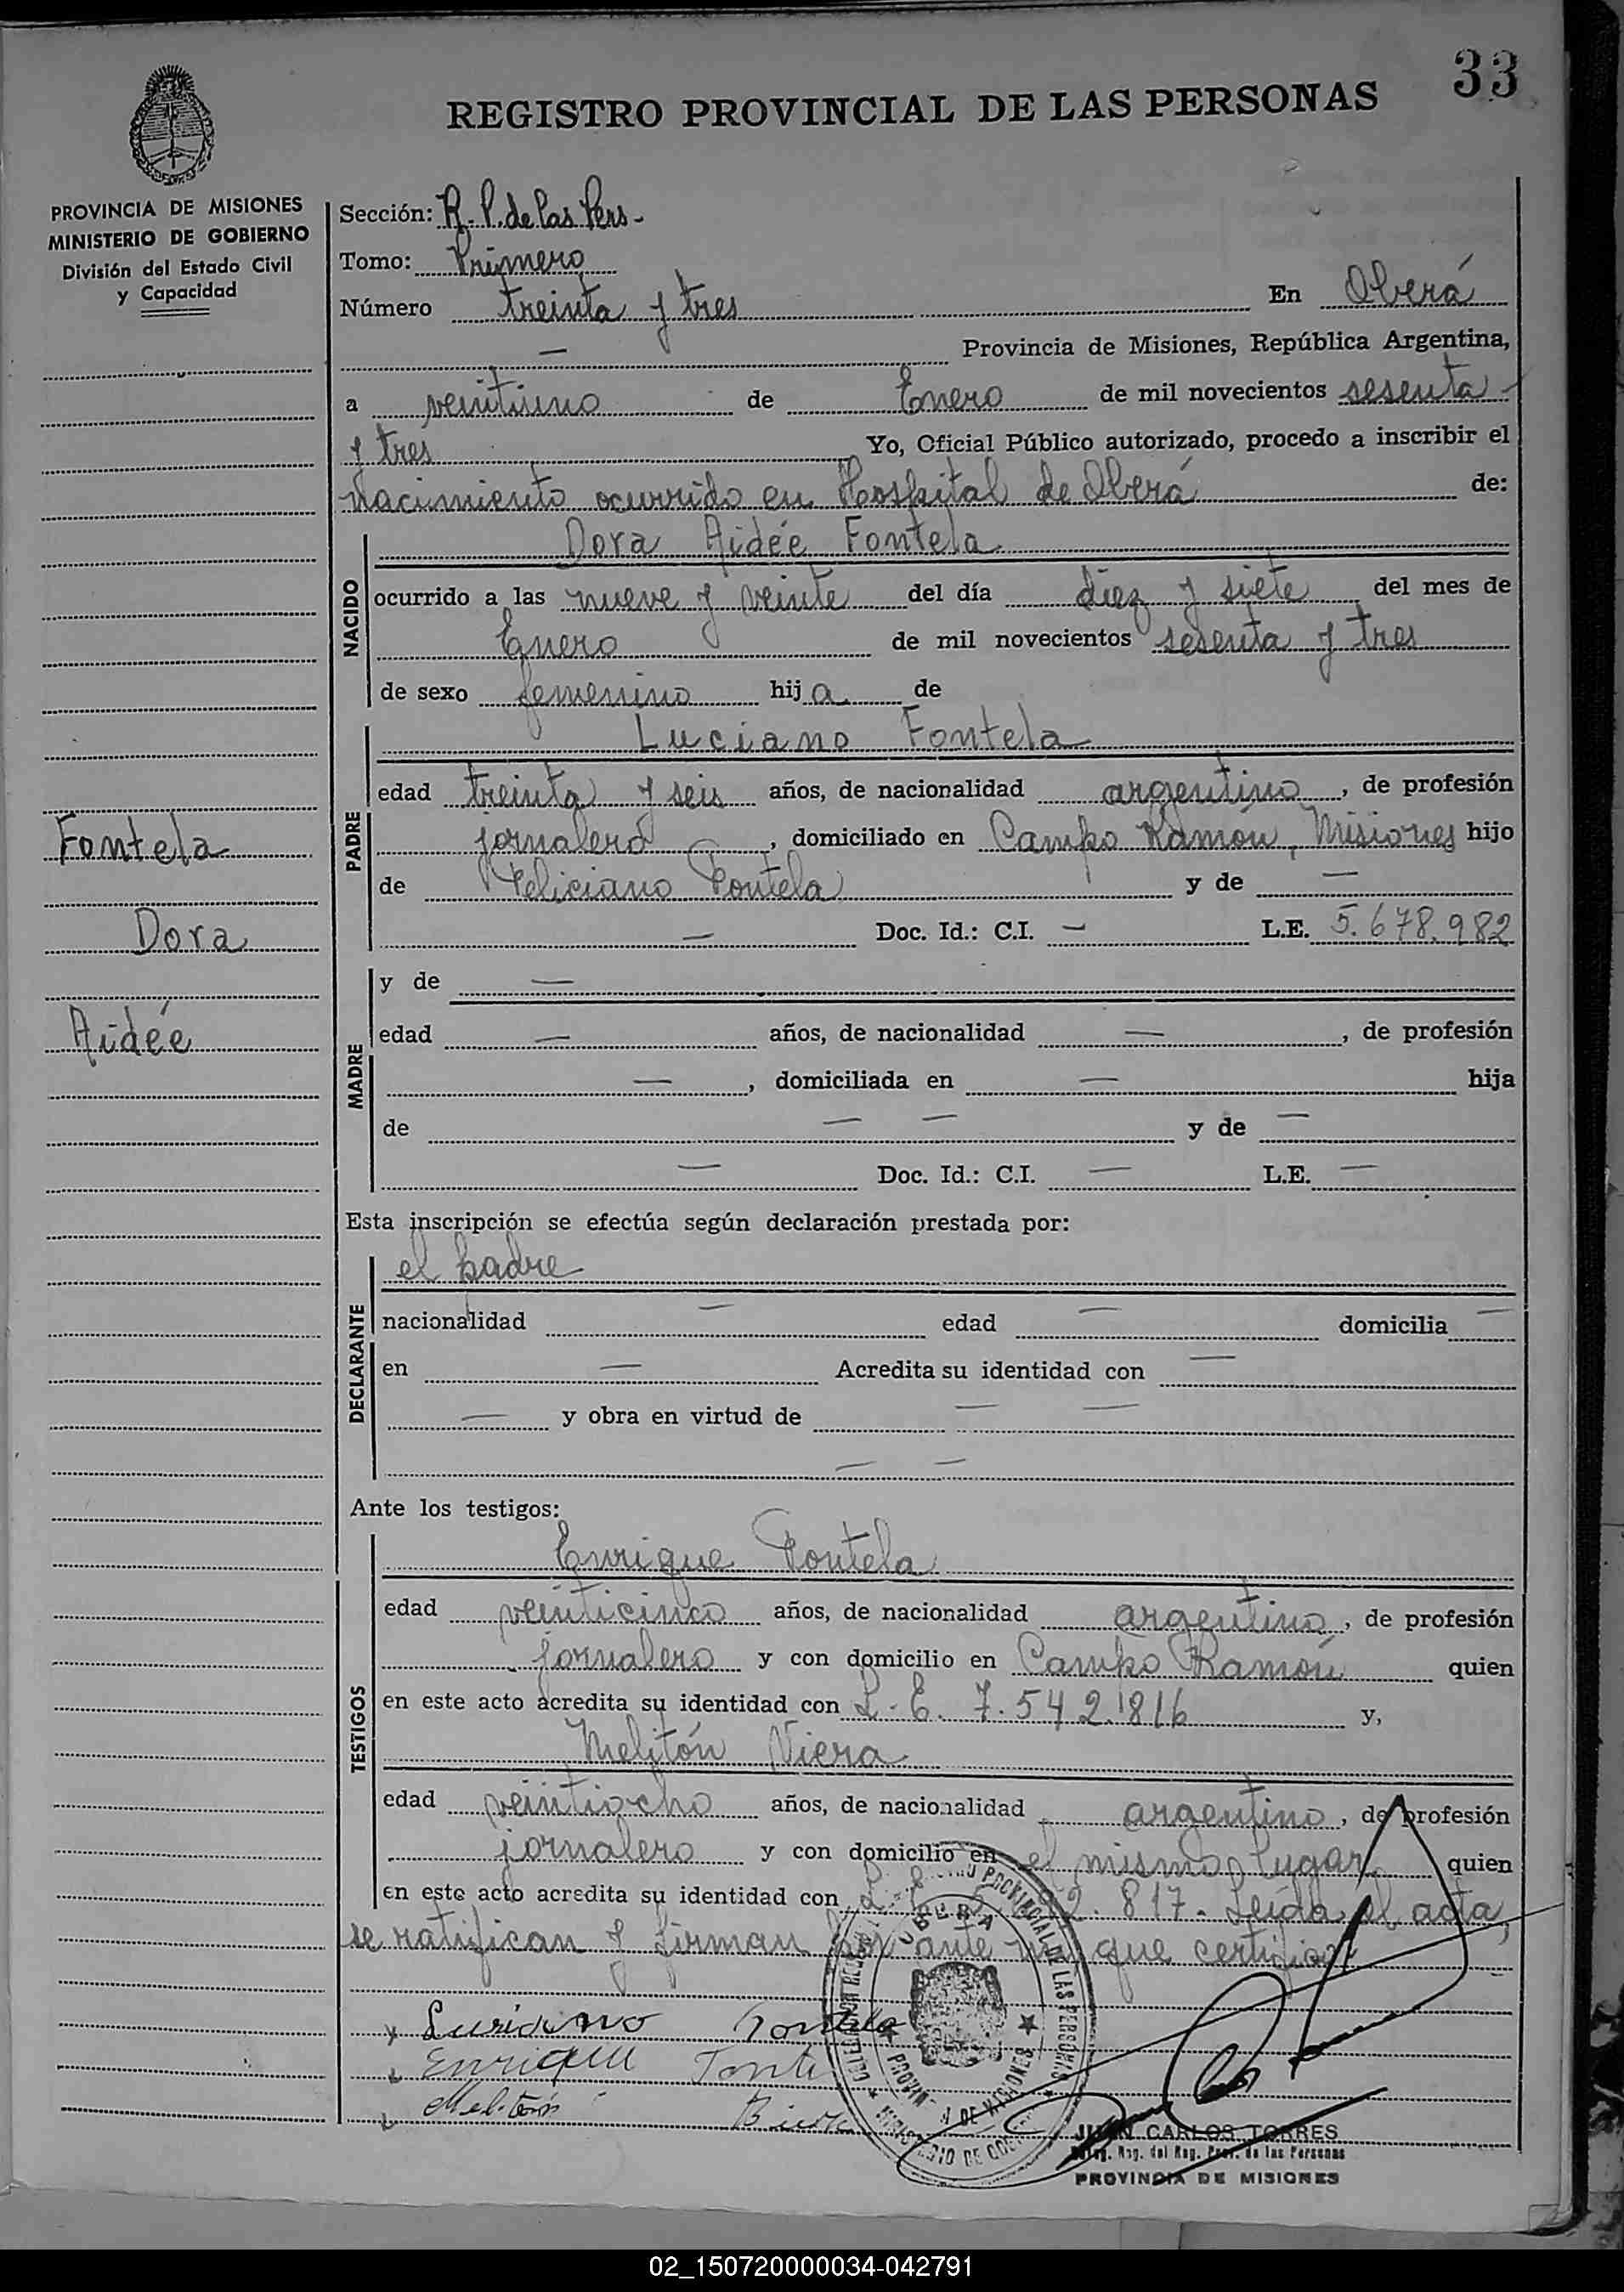 33
REGISTRO PROVINCIAL DE LAS PERSONAS
PROVINCIA DE MISIONES
MINISTERIO DE GOBIERNO
División del Estado Civil
y Capacidad
Sección: R. P. de las Pers.
Tomo: Primero
Número treinta y tres En Oberá
— Provincia de Misiones, República Argentina,
a veintiuno de Enero de mil novecientos sesenta
y tres Yo, Oficial Público autorizado, procedo a inscribir el
nacimiento ocurrido en Hospital de Oberá de:
NACIDO
Dora Aidée Fontela
ocurrido a las nueve y veinte del día diez y siete del mes de
Enero de mil novecientos sesenta y tres
de sexo femenino hija de
PADRE
Luciano Fontela
edad treinta y seis años, de nacionalidad argentino, de profesión
jornalero, domiciliado en Campo Ramón, Misiones hijo
de Feliciano Fontela y de —
— Doc. Id.: C.I. — L.E. 5.678.982
Fontela
Dora
Aidée
MADRE
y de —
edad — años, de nacionalidad —, de profesión
—, domiciliada en — hija
de — — y de —
— Doc. Id.: C.I. — L.E. —
Esta inscripción se efectúa según declaración prestada por:
DECLARANTE
el padre
nacionalidad — edad — domicilia —
en — Acredita su identidad con —
— y obra en virtud de — —
— —
Ante los testigos:
TESTIGOS
Enrique Fontela
edad veinticinco años, de nacionalidad argentino, de profesión
jornalero y con domicilio en Campo Ramón quien
en este acto acredita su identidad con L. E. 7.542.816 y,
Melitón Viera
edad veintiocho años, de nacionalidad argentino, de profesión
jornalero y con domicilio en el mismo lugar quien
en este acto acredita su identidad con L. E. 2. 817. Leída el acta,
se ratifican y firman por ante mi que certifico
Luciano Fontela
Enrique
Melitón
OBERA
PROVINCIAL DE LAS PERSONAS
MINISTERIO DE
JUAN CARLOS TORRES
del Reg. Prov. de las Personas
PROVINCIA DE MISIONES
02_150720000034-042791